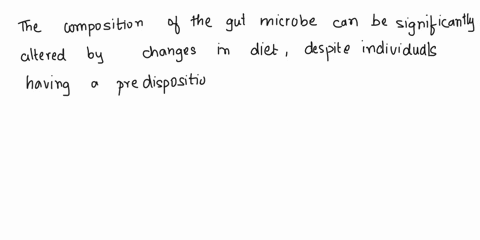 The composition of the gut microbe can be significantly
altered by changes in diet, despite individuals
having a predispositio